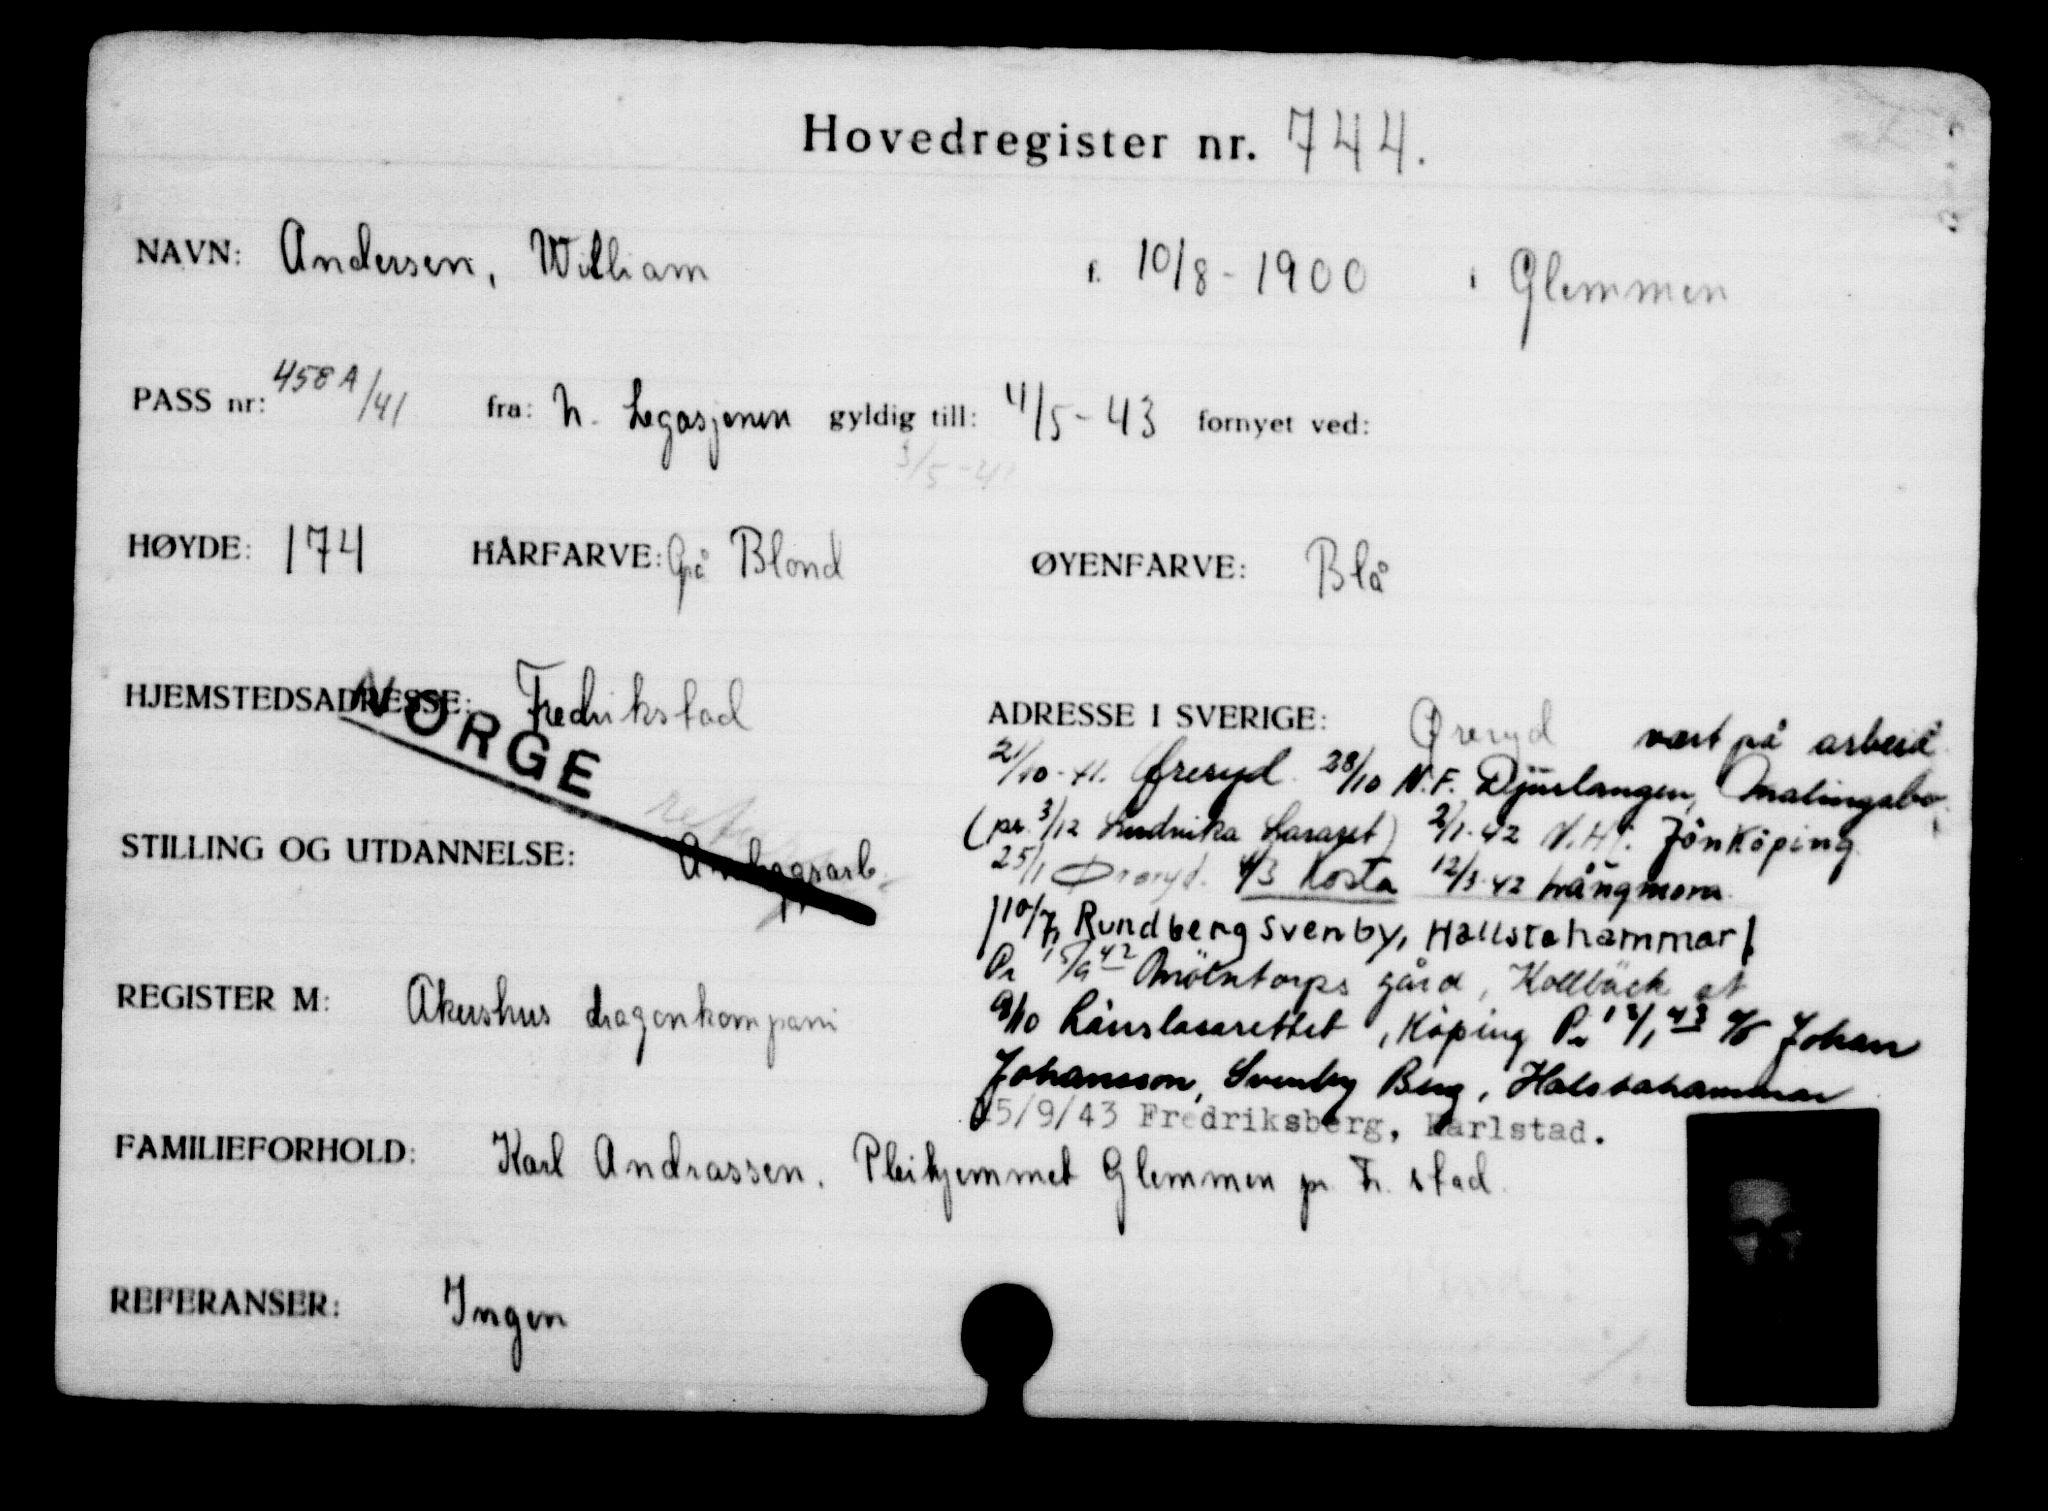 Hovedregister nr. 744.
NAVN: Andersen, William f. 10/8 - 1900 i Glemmen
PASS nr: 458A/41 fra: N. Legasjonen gyldig till: 4/5 - 43 fornyet ved:
3/5 - 4
HØYDE: 174 HÅRFARVE: Grå Blond ØYENFARVE: Blå
HJEMSTEDSADRESSE: Fredrikstad
NORGE
STILLING OG UTDANNELSE: Anleggsarb.
REGISTER M: Akershus dragonkompani
ADRESSE I SVERIGE: Øreryd vært på arbeid
21/10-41. Øreryd. 28/10 N.F. Djurlangen, Malingsbo.
(pr. 3/12 Ludvika Lasaret) 2/1-42 N.H. Jönköping
25/1 Øreryd. 4/3 Kosta 12/3-42 Långmora.
/10/7, Rundberg Svenby, Hallstahammar/.
Pr 15/9 42 Mölntorps gård, Kolbäck at
9/10 Länslasarettet, Köping Pr 13/1 43 c/o Johan
Johansson, Svenby Berg, Halstahammar
15/9/43 Fredriksberg, Karlstad.
FAMILIEFORHOLD: Karl Andrassen. Pleihjemmet Glemmen pr. Fr. stad.
REFERANSER: Ingen